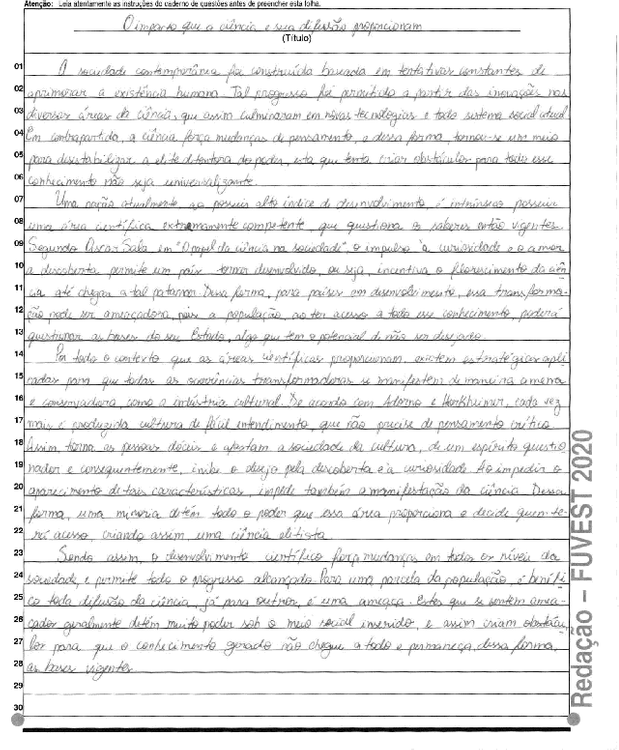 Atenção: Leia atentamente as instruções do caderno de questões antes de preencher esta folha.
O impacto que a ciência e sua difusão proporcionam
(Título)
01 A sociedade contemporânea foi construída baseada em tentativas constantes de
02 aprimorar a existência humana. Tal progresso foi permitido a partir das inovações nas
03 diversas áreas da ciência, que assim culminaram em novas tecnologias e todo sistema social atual.
04 Em contrapartida, a ciência força mudanças de pensamento, e dessa forma, tornou-se um meio
05 para desestabilizar a elite detentora do poder, esta que tenta criar obstáculos para todo esse
06 conhecimento não seja universalizante.
07 Uma nação atualmente ao possuir alto índice de desenvolvimento, é intrínseco possuir
08 uma área científica extremamente competente, que questiona os saberes então vigentes.
09 Segundo Oscar Sala em "O papel da ciência na sociedade", o impulso à curiosidade e o amor
10 a descoberta permite um país tornar desenvolvido, ou seja, incentiva o florescimento da ciên
11 cia até chegar a tal patamar. Dessa forma, para países em desenvolvimento, essa transforma-
12 ção pode ser ameaçadora, pois a população, ao ter acesso a todo esse conhecimento, poderá
13 questionar as bases do seu Estado, algo que tem o potencial de não ser desejado.
14 Por todo o contexto que as áreas científicas proporcionam, existem estratégias apli
15 cadas para que todas as ocorrências transformadoras se manifestem de maneira amena
16 e conservadora como a indústria cultural. De acordo com Adorno e Horkheimer, cada vez
17 mais é produzida cultura de fácil entendimento, que não precise de pensamento crítico.
18 Assim torna as pessoas dóceis e afastam a sociedade da cultura, de um espírito questio
19 nador e consequentemente, inibe o desejo pela descoberta e a curiosidade. Ao impedir o
20 aparecimento de tais características, impede também a manifestação da ciência. Dessa
21 forma, uma minoria detém todo o poder que essa área proporciona e decide quem te-
22 rá acesso, criando assim uma ciência elitista.
23 Sendo assim, o desenvolvimento científico força mudanças em todos os níveis da
24 sociedade, e permite todo o progresso alcançado. Para uma parcela da população, é benéfi
25 co toda difusão da ciência, já para outros, é uma ameaça. Estes que se sentem amea-
26 çados geralmente detém muito poder sob o meio social inserido, e assim criam obstácu
27 los para que o conhecimento gerado não chegue a todos e permaneça, dessa forma,
28 as bases vigentes.
29
30
Redação – FUVEST 2020